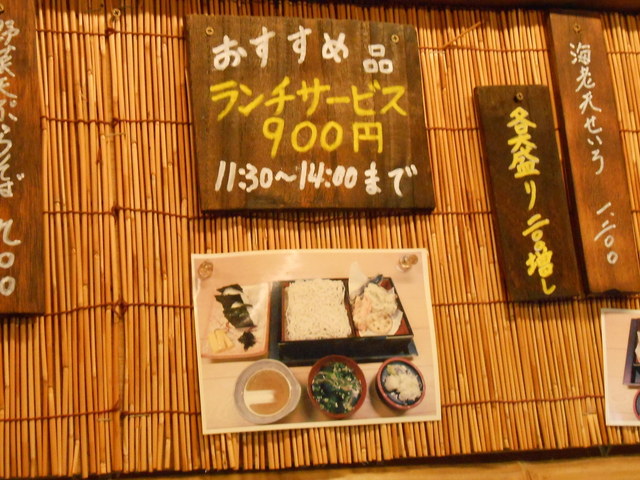 おすすめ品
ランチサービス
900円
11:30〜14:00まで
野菜天ぷらそば 九00
各大盛り 二〇〇増し
海老天せいろ 一、二〇〇